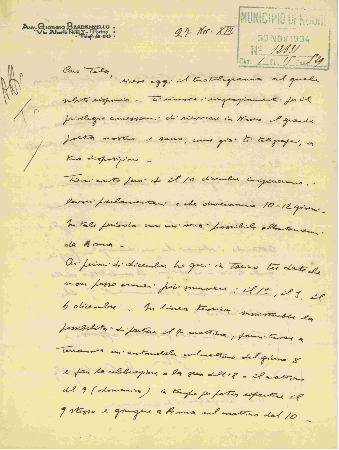 Avv. Giorgio Bardanzellu
Via Alberto Nota 5 - Torino
Telef. 46-843
27 Nov. XIII
MUNICIPIO DI NUORO
30 NOV 1934
N.° 12831
Cat.
Caro Tola,
ricevo oggi il tuo telegramma al quale
subito rispondo. Ti
privilegio concessomi di rievocare in Nuoro il grande
poeta nostro e sono, come già ti telegrafai, a
tua disposizione.
Tieni conto però che il 10 dicembre
lavori parlamentari e che dureranno 10-12 giorni.
In tale periodo non mi sarà possibile allontanarmi
da Roma.
Ai primi di dicembre ho qui in Torino tre date che
non posso ormai più rimuovere: il 1°, il 3, il
6 dicembre. In linea teorica resisterebbe la
possibilità di partire il 7 mattina, pernottare a
Terranova in automobile sul mattino del giorno 8
e fare la celebrazione o la sera dell'8 o il mattino
del 9 (domenica) in tempo per poter ripartire il
9 stesso e giungere a Roma sul mattino del 10.